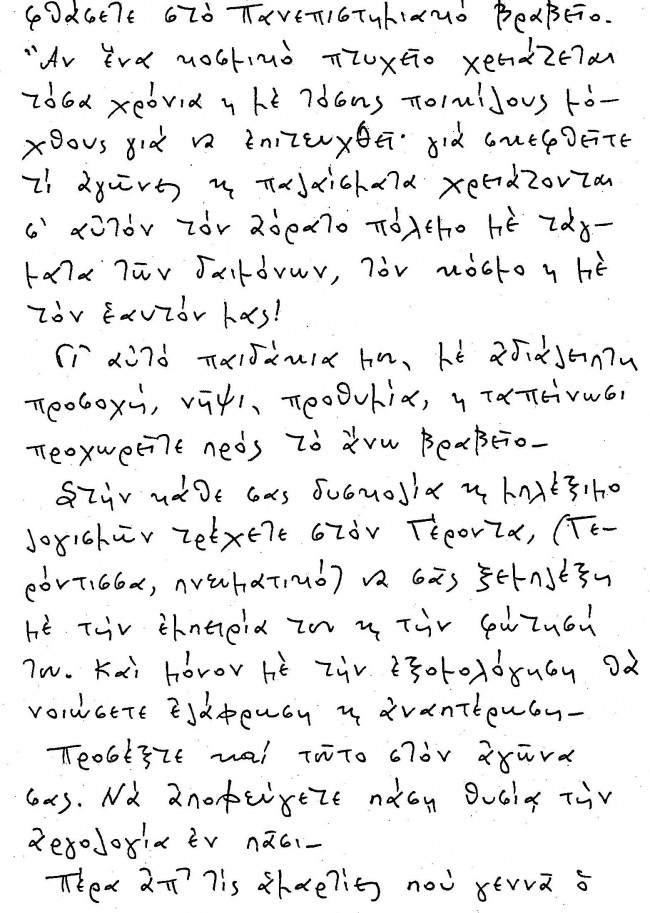 φθάσετε στὸ Πανεπιστημιακό βραβεῖο.
"Αν ἕνα κοσμικὸ πτυχεῖο χρειάζεται
τόσα χρόνια κ μὲ τόσους ποικίλους μό-
χθους γιά νά ἐπιτευχθεῖ· γιά σκεφθεῖτε
τί ἀγῶνες κ παλαίσματα χρειάζονται
σ' αὐτόν τόν ἀόρατο πόλεμο μὲ τάγ-
ματα τῶν δαιμόνων, τόν κόσμο κ μὲ
τὸν ἑαυτόν μας!
Γι' αὐτό παιδάκια μου, μέ ἀδιάλειπτη
προσοχή, νῆψι, προθυμία, κ ταπείνωσι
προχωρεῖτε πρός τὸ ἄνω βραβεῖο-
Στήν κάθε σας δυσκολία κ μπλέξιμο
λογισμῶν τρέχετε στὸν Γέροντα, (Γε-
ρόντισσα, πνευματικό) νά σᾶς ξεμπλέξη
μὲ τὴν ἐμπειρία του κ τὴν φώτισή
του. Καὶ μόνον μὲ τὴν ἐξομολόγηση θὰ
νοιώσετε ἐλάφρωση κ ἀναπτέρωση-
Προσέξτε καί τοῦτο στὸν ἀγῶνα
σας. Νά ἀποφεύγετε πάσῃ θυσίᾳ τὴν
ἀργολογία ἐν πᾶσι-
Πέρα ἀπ' τὶς ἁμαρτίες πού γεννᾶ ὁ